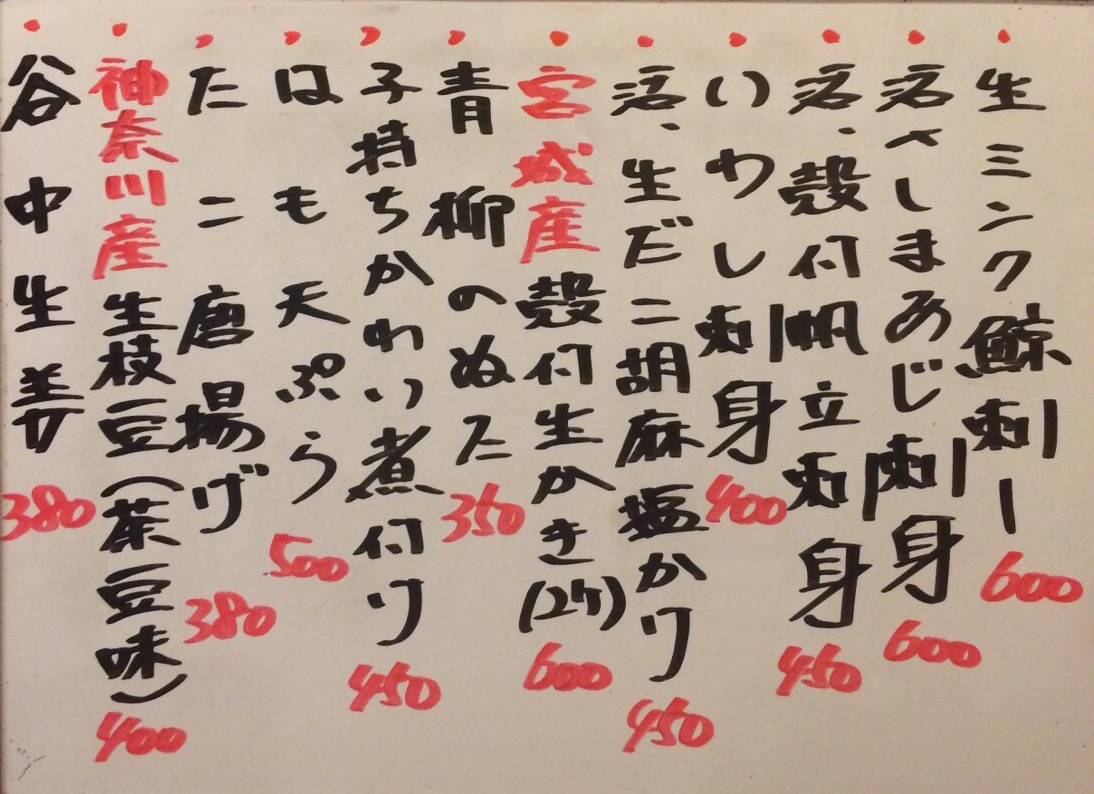 生ミンク鯨刺し 600
活、しまあじ刺身 600
活、殻付帆立刺身 450
いわし刺身 400
活、生だこ胡麻塩かけ 450
宮城産殻付生かき(2ケ) 600
青柳のぬた 350
子持ちかれい煮付け 450
はも天ぷら 500
たこ唐揚げ 380
神奈川産生枝豆(茶豆味) 400
谷中生姜 380